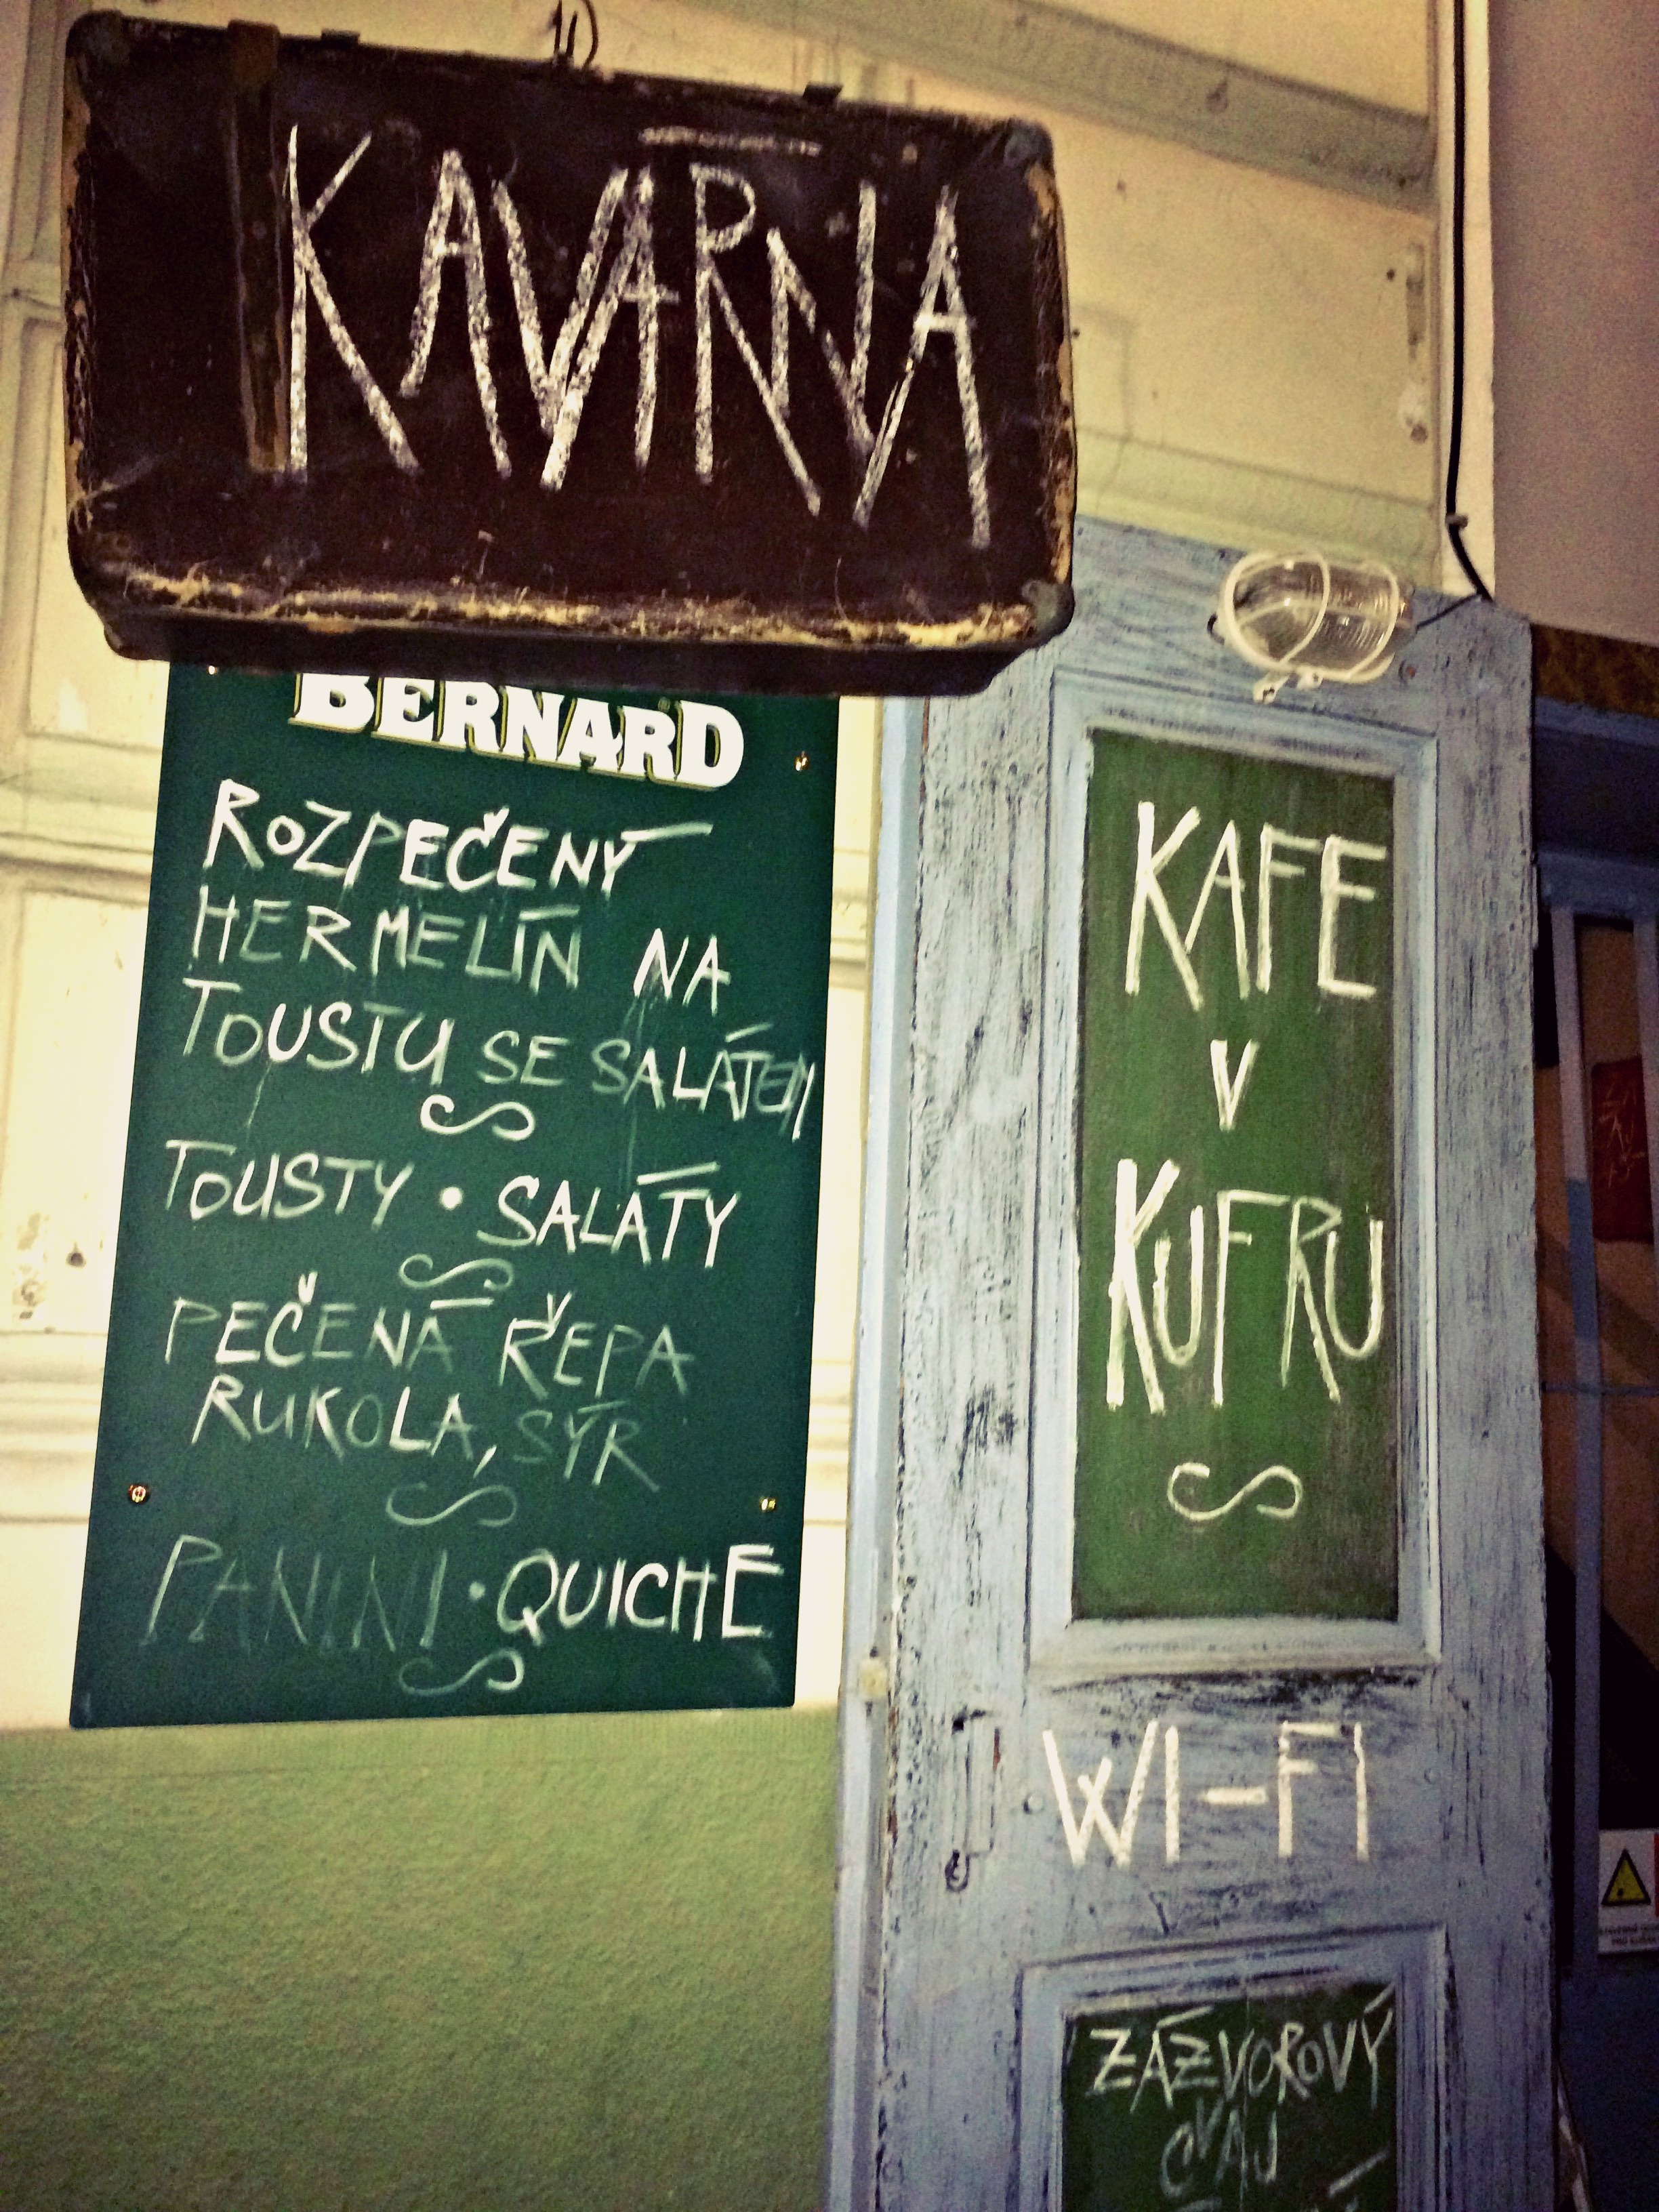 KAVÁRNA
BERNARD
ROZPEČENÝ
HERMELÍN NA
TOUSTU SE SALÁTEM
TOUSTY • SALÁTY
PEČENÁ ŘEPA
RUKOLA, SÝR
PANINI • QUICHE
KAFE
V
KUFRU
WI-FI
ZÁZVOROVÝ
ČAJ